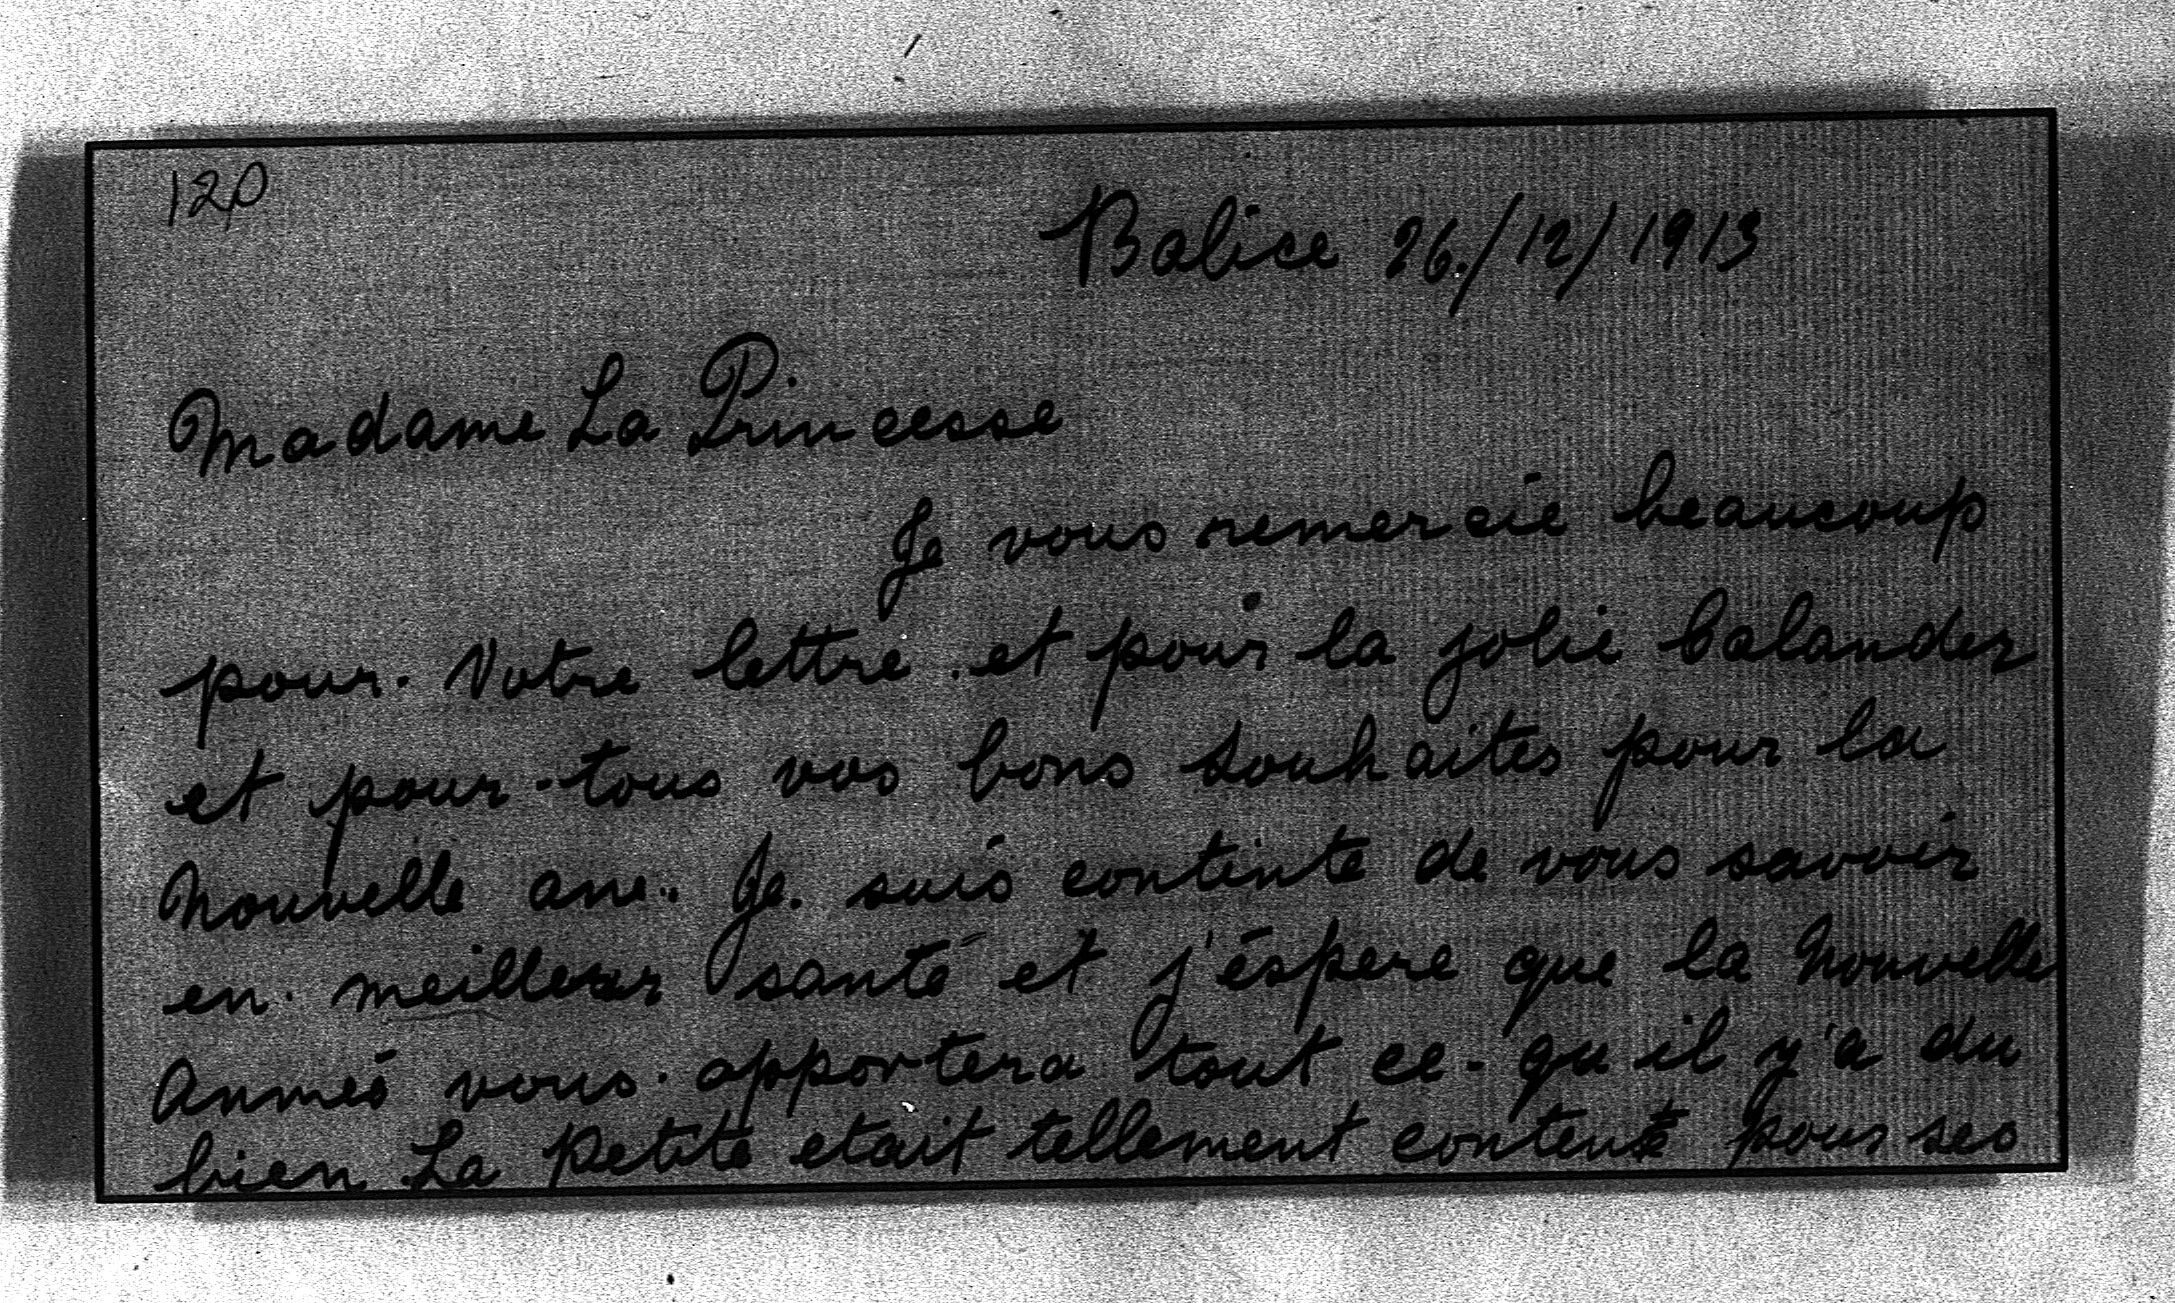 120
Balice 26./12/1913
Madame La Princesse
Je vous remercie beaucoup
pour. Votre lettre . et pour la jolie Calander
et pour tous vos bons souhaites pour la
Nouvelle ane.. Je. suis contente de vous savoir
en. meilleur santé et j'éspere que la Nouvelle
Anneés vous. apportera tout ce-qu il y'a du
bien. La Petite etait tellement contente pour ses